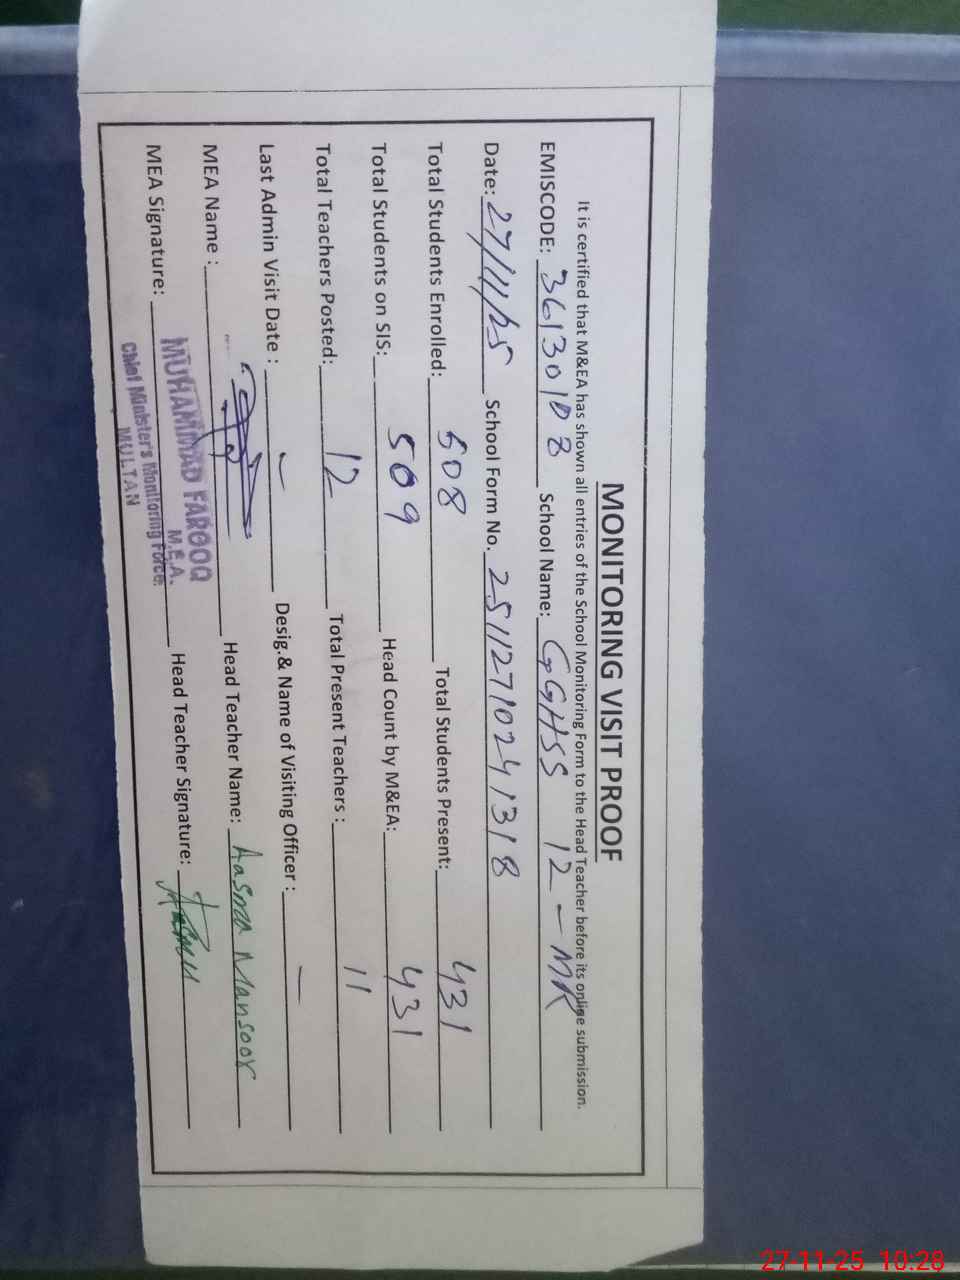 MONITORING VISIT PROOF
It is certified that M&EA has shown all entries of the School Monitoring Form to the Head Teacher before its online submission.
EMISCODE: 36130108 School Name: GGHSS 12-MR
Date: 27/11/25 School Form No. 2511271024 1318
Total Students Enrolled: 508 Total Students Present: 431
Total Students on SIS: 509 Head Count by M&EA: 431
Total Teachers Posted: 12 Total Present Teachers : 11
Last Admin Visit Date : - Desig.& Name of Visiting Officer : -
MEA Name : Head Teacher Name: Aasma Mansoor
MEA Signature: Head Teacher Signature:
MUHAMMAD FAROOQ
M.E.A.
Chief Minister's Monitoring Force.
MULTAN
27-11-25 10:28